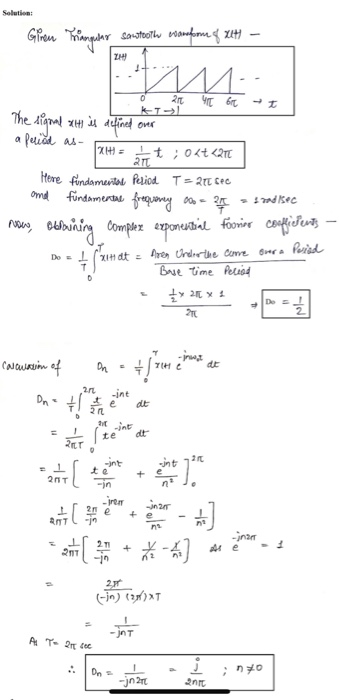 Solution:
Given Triangular sawtooth waveform of x(t) –
x(t)
1
0 2π 4π 6π → t
k– T –›1
The signal x(t) is defined over
a period as-
x(t) = 1/2π t ; 0<t<2π
Here fundamental Period T = 2π sec
and fundamental frequency ω₀ = 2π/T = 1 rad/sec
Now, obtaining Complex exponential fourier coefficients –
D₀ = 1/T ∫₀ᵀ x(t) dt = Area Under the curve over a Period / Base Time Period
= ½ × 2π × 1 / 2π ⇒ D₀ = 1/2
Calculation of Dn = 1/T ∫₀ᵀ x(t) e^-jnω₀t dt
Dn = 1/T ∫₀^2π t/2π e^-jnt dt
= 1/2πT ∫₀^2π t e^-jnt dt
= 1/2πT [ t e^-jnt / -jn + e^-jnt / n² ]₀^2π
1/2πT [ 2π/-jn e^-jn2π + e^-jn2π / n² - 1/n² ]
= 1/2πT [ 2π/-jn + 1/n² - 1/n² ] as e^-jn2π = 1
= 2π / (-jn) (2π) × T
= 1 / -jnT
At T = 2π sec
∴ Dn = 1 / -jn2π = j / 2nπ ; n ≠ 0